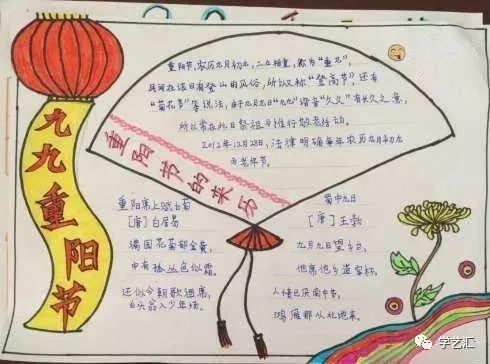 九九重阳节
重阳节,农历九月初九,二九相重,称为"重九",
民间在该日有登山的风俗,所以又称"登高节",还有
"菊花节"等说法,由于九月九日"九九"谐音"久久"有长久之意,
所以常在此日祭祖与推行敬老活动。
2012年12月28日,法律明确每年农历九月初九
为老年节。
重阳节的来历
重阳席上赋白菊
[唐]白居易
满园花菊郁金黄,
中有孤丛色似霜。
还似今朝歌酒席,
白头翁入少年场。
蜀中九日
[唐]王勃
九月九日望乡台,
他席他乡送客杯。
人情已厌南中苦,
鸿雁那从北地来。
学艺汇